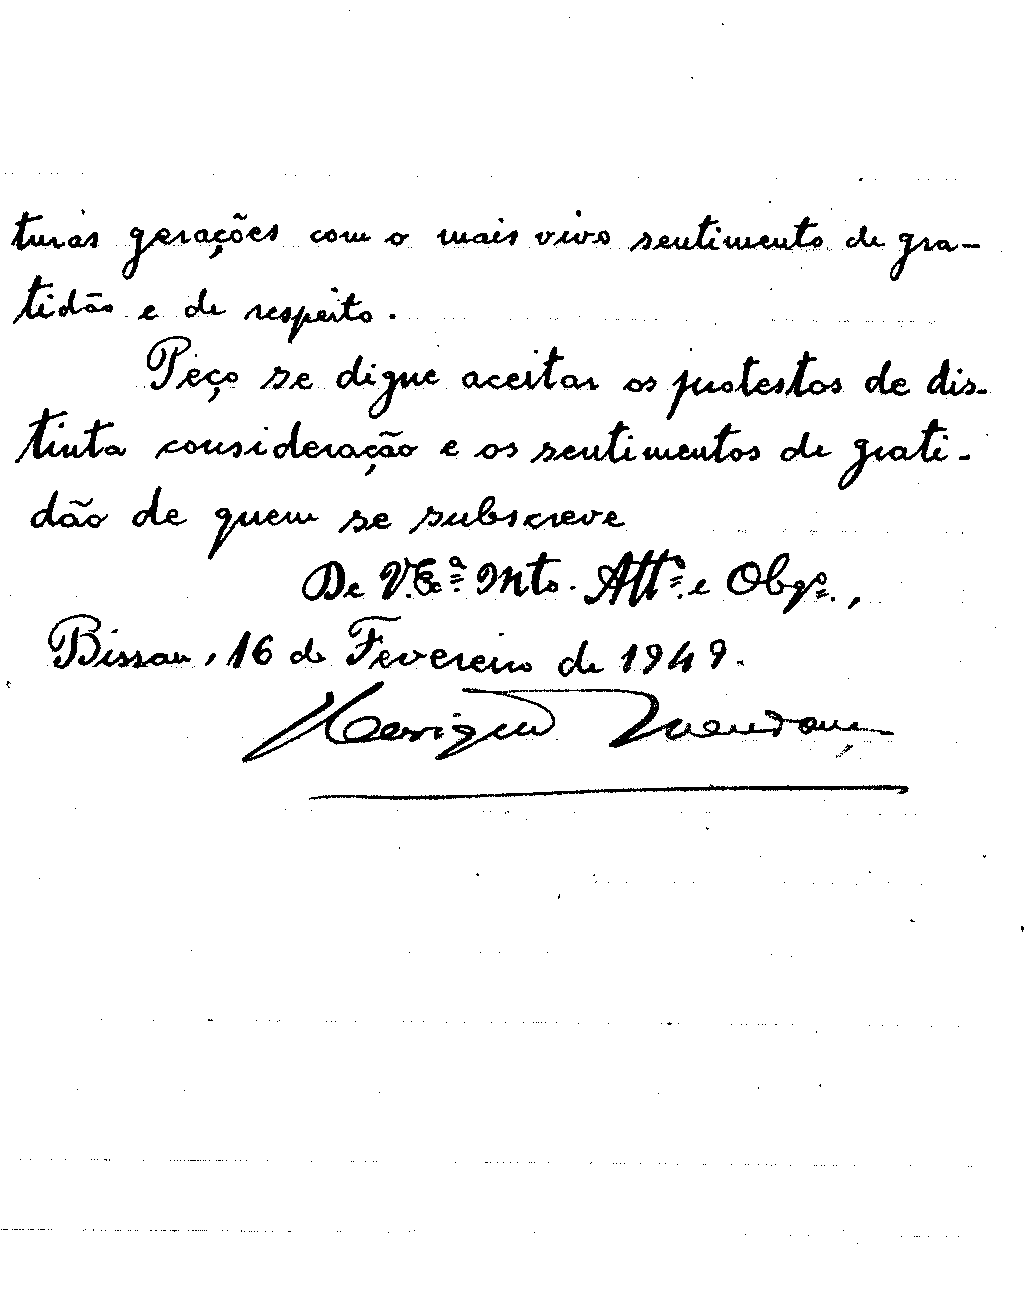 turas gerações com o mais vivo sentimento de gra-
tidão e de respeito.
Peço se digne aceitar os protestos de dis-
tinta consideração e os sentimentos de grati-
dão de quem se subscreve
De V. Exª. Mto. Attº. e Obgº.,
Bissau, 16 de Fevereiro de 1949.
Henrique Mendonça